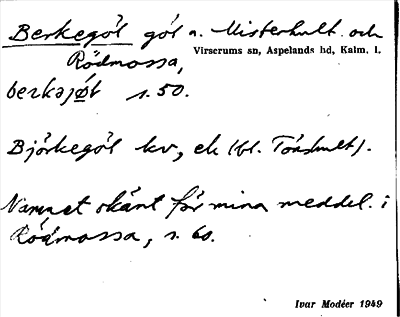 Berkegöl göl n. Misterhult och
Virserums sn, Aspelands hd, Kalm. l.
Rödmossa,
berkajøl s. 50.
Björkegöl kv, ek (bl. Tönshult).
Namnet okänt för mina meddel. i
Rödmossa, s. 60.
Ivar Modéer 1949